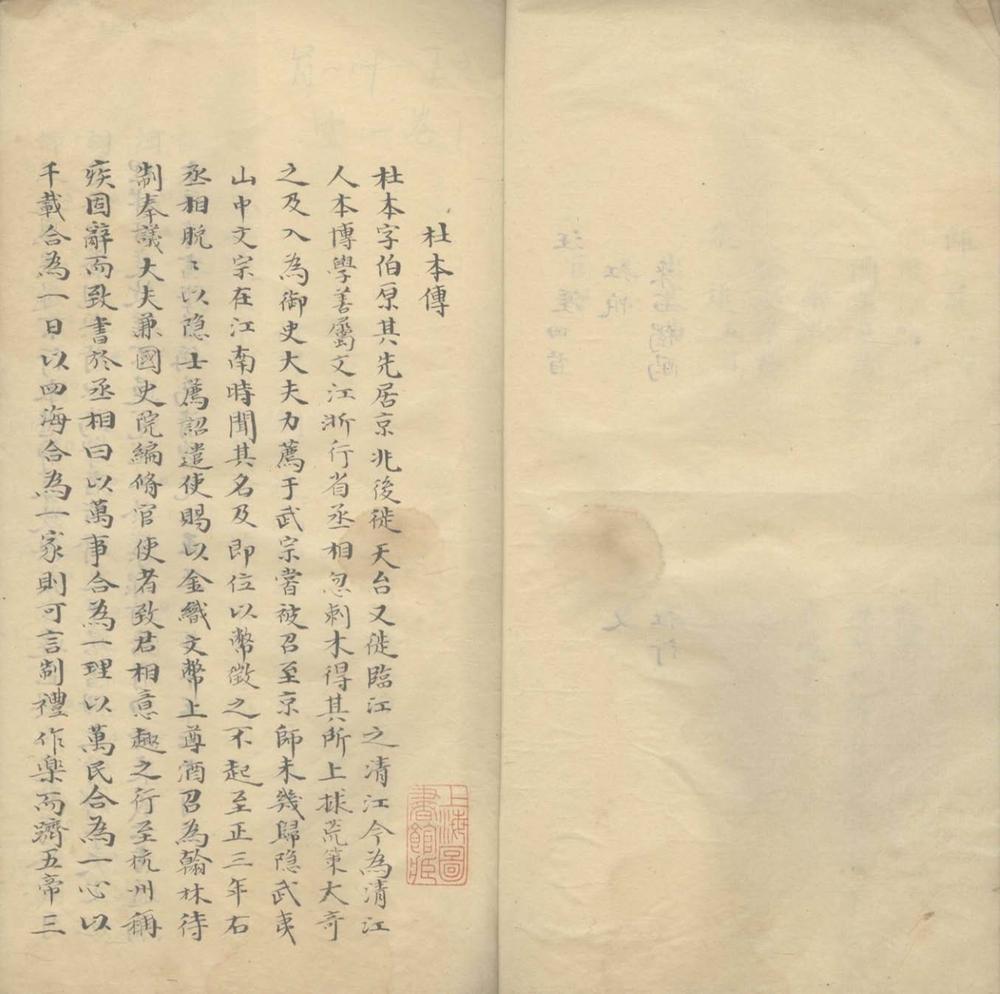 杜本傳
杜本字伯原其先居京兆後徙天台又徙臨江之清江今為清江
人本博學善屬文江浙行省丞相忽剌木得其所上捄荒策大奇
之及入為御史大夫力薦于武宗嘗被召至京師未幾歸隐武夷
山中文宗在江南時聞其名及即位以幣徵之不起至正三年右
丞相脫〻以隐士薦詔遣使賜以金織文幣上尊酒召為翰林待
制奉議大夫兼國史院編脩官使者致君相意趣之行至杭州稱
疾固辭而致書於丞相曰以萬事合為一理以萬民合為一心以
千載合為一日以四海合為一家則可言制禮作樂而躋五帝三
上海圖
書館藏